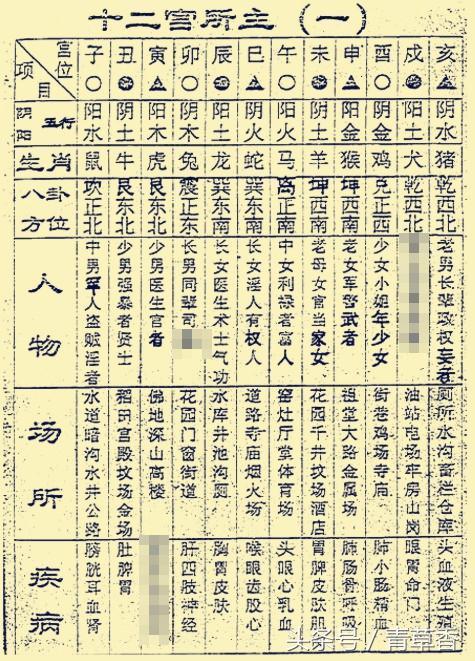 十二宫所主（一）
宫位 项目 子 丑 寅 卯 辰 巳 午 未 申 酉 戌 亥
阴阳五行 阳水 阴土 阳木 阴木 阳土 阴火 阳火 阴土 阳金 阴金 阳土 阴水
生肖 鼠 牛 虎 兔 龙 蛇 马 羊 猴 鸡 犬 猪
八卦方位 坎正北 艮东北 艮东北 震正东 巽东南 巽东南 离正南 坤西南 坤西南 兑正西 乾西北 乾西北
人物
中男军人盗贼淫者
少男强暴者贤士
少男医生官者
长男同辈司
长女医生术士气功
长女淫人有权人
中女利禄者富人
老母女官当家女
老女军警武者
少女小姐年少女
老男长辈政权妄者
场所
水道暗沟水井公路
稻田宫殿坟场金场
佛地深山高楼
花园门窗街道
水库井池沟厕
道路寺庙烟火场
窑灶厅堂体育场
花园千井坟场酒店
祖堂大路金属场
街巷鸡场寺庙
油站电场牢房山岗
厕所水沟畜栏仓库
疾病
膀胱耳血肾
肚脾胃
肝四肢神经
胸胃皮肤
喉眼齿股心
头眼心乳血
胃脾皮肤肌
肺肠骨呼吸
肺小肠精血
眼胃命门
头血液生殖
头条号/青草香